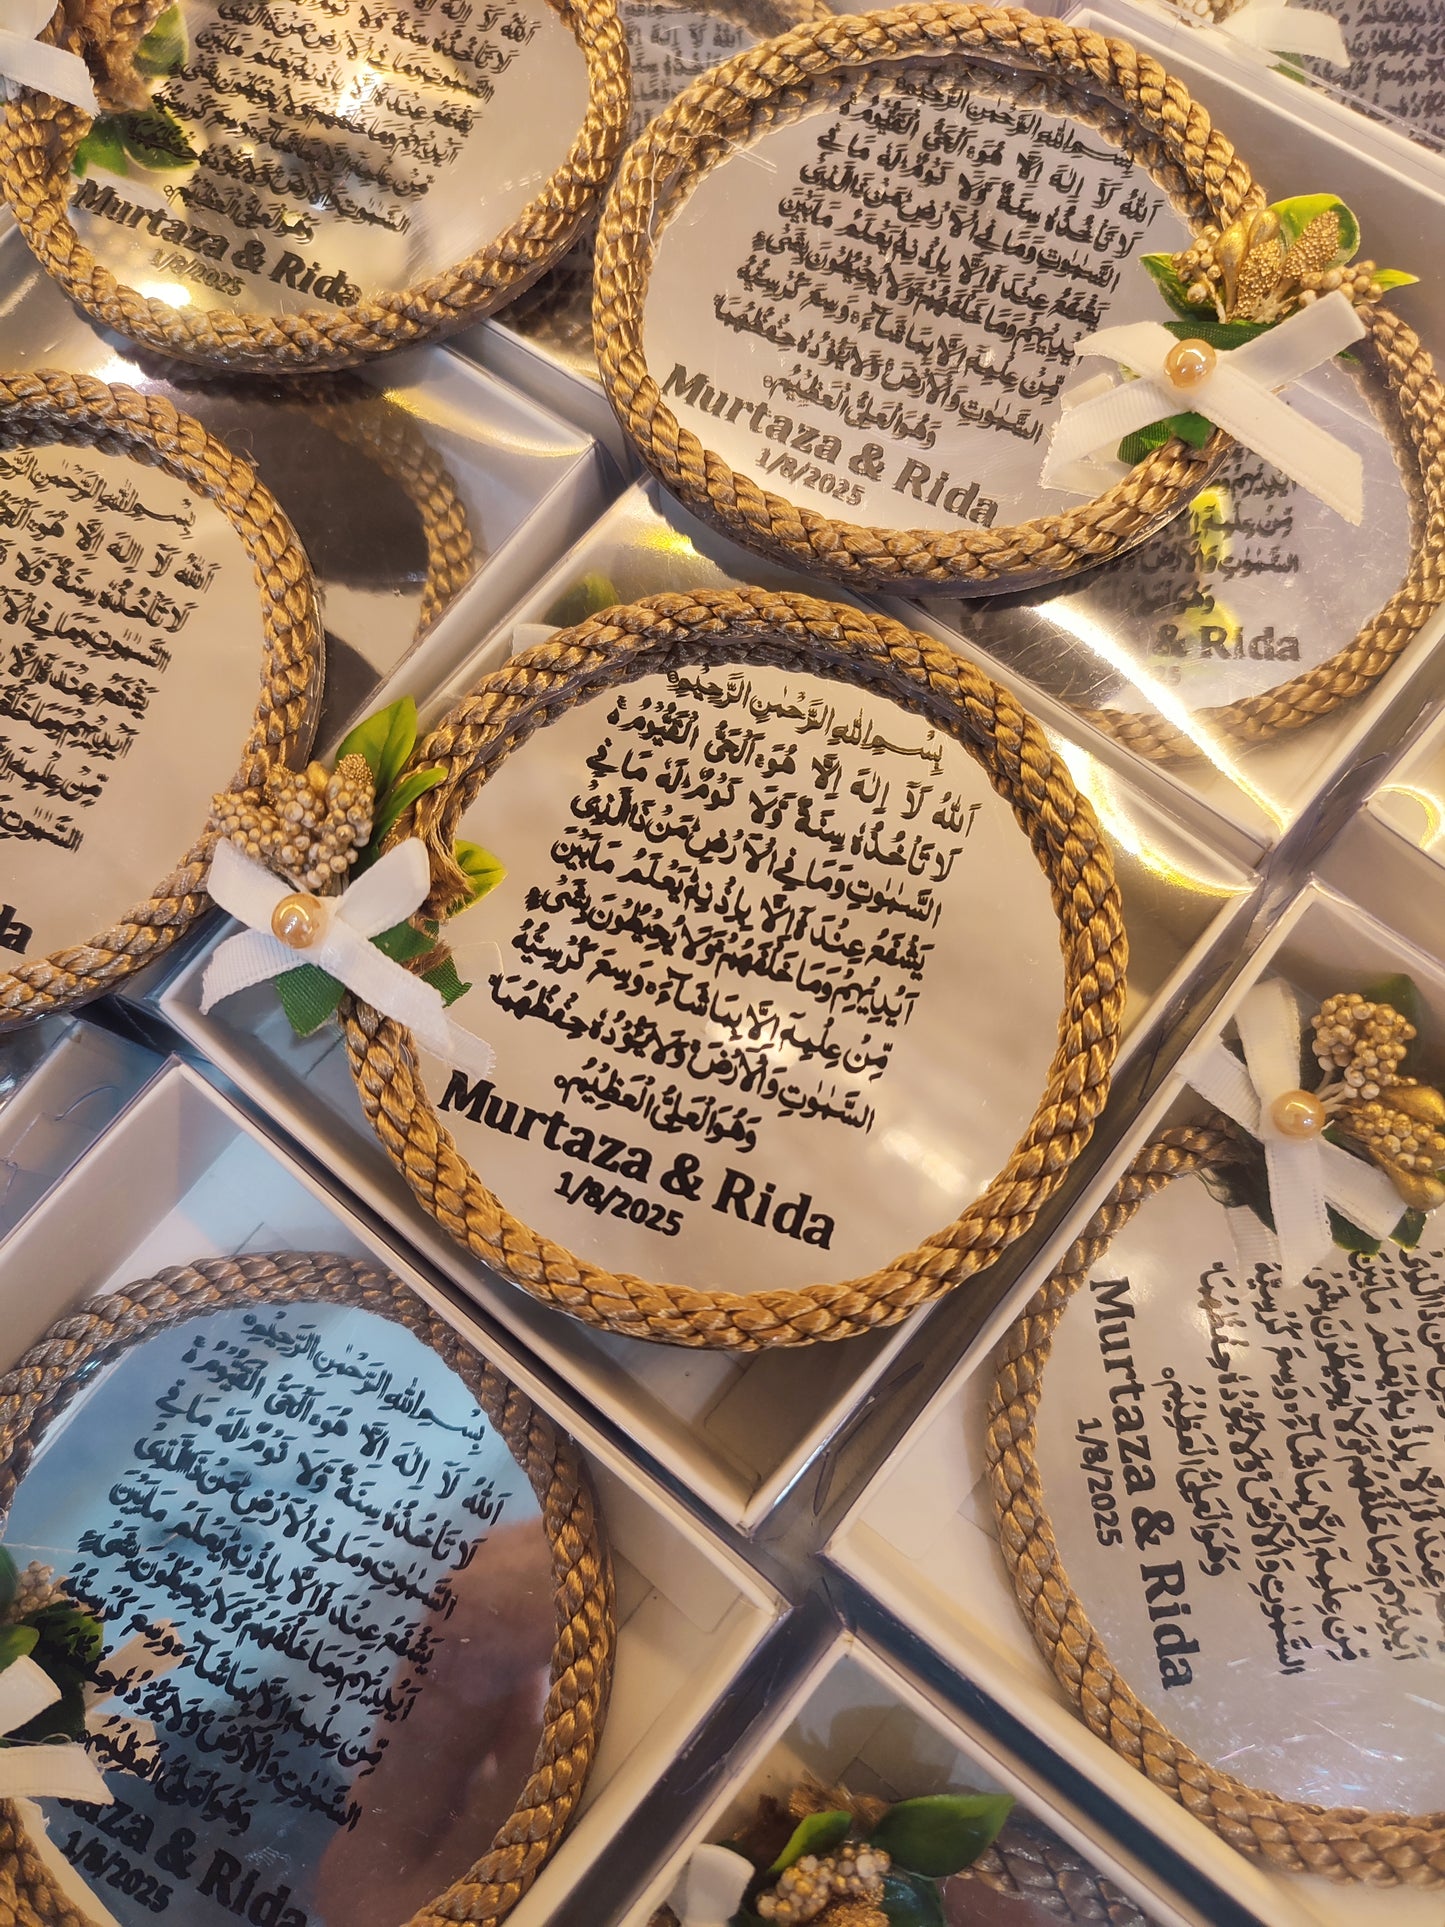 بِسْمِ اللّٰهِ الرَّحْمٰنِ الرَّحِيْمِ
اَللّٰهُ لَآ اِلٰهَ اِلَّا هُوَ ۚ اَلْحَىُّ الْقَيُّوْمُ ۚ
لَا تَاْخُذُهٗ سِنَةٌ وَّلَا نَوْمٌ ؕ لَهٗ مَا فِى
السَّمٰوٰتِ وَمَا فِى الْاَرْضِ ؕ مَنْ ذَا الَّذِىْ
يَشْفَعُ عِنْدَهٗۤ اِلَّا بِاِذْنِهٖ ؕ يَعْلَمُ مَا بَيْنَ
اَيْدِيْهِمْ وَمَا خَلْفَهُمْ ۚ وَلَا يُحِيْطُوْنَ بِشَىْءٍ
مِّنْ عِلْمِهٖۤ اِلَّا بِمَا شَآءَ ۚ وَسِعَ كُرْسِيُّهُ
السَّمٰوٰتِ وَالْاَرْضَ ۚ وَلَا يَئُوْدُهٗ حِفْظُهُمَا ۚ
وَهُوَ الْعَلِىُّ الْعَظِيْمُ
Murtaza & Rida
1/8/2025